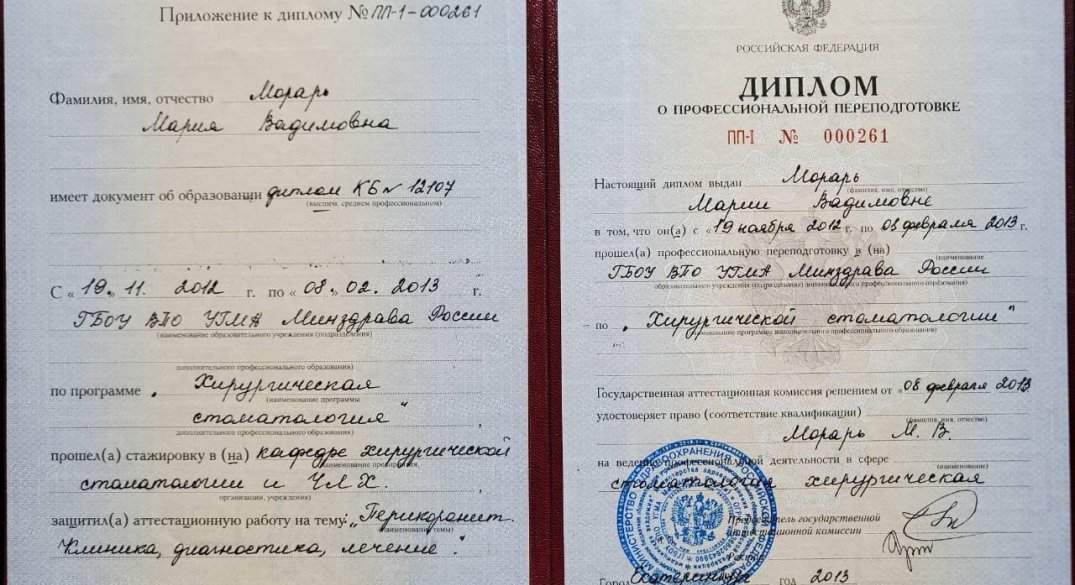 Приложение к диплому № ПП-1-000261
Фамилия, имя, отчество Морарь
Мария Вадимовна
имеет документ об образовании диплом КБ № 12107
(высшем, среднем профессиональном)
С « 19 » 11. 2012 г. по « 08 » 02. 2013 г.
ГБОУ ВПО УГМА Минздрава России
(наименование образовательного учреждения (подразделения)
дополнительного профессионального образования)
по программе „Хирургическая
(наименование программы
стоматология“
дополнительного профессионального образования)
прошел(а) стажировку в (на) кафедре хирургической
(наименование предприятия,
стоматологии и ЧЛХ.
организации, учреждения)
защитил(а) аттестационную работу на тему: „Перикоронит.
(наименование темы)
Клиника, диагностика, лечение“.
РОССИЙСКАЯ ФЕДЕРАЦИЯ
ДИПЛОМ
О ПРОФЕССИОНАЛЬНОЙ ПЕРЕПОДГОТОВКЕ
ПП-I № 000261
Настоящий диплом выдан Морарь
(фамилия, имя, отчество)
Марии Вадимовне
в том, что он(а) с «19 ноября 2012 г. по 08 февраля 2013 г.
прошел(а) профессиональную переподготовку в (на)
(наименование
ГБОУ ВПО УГМА Минздрава России
образовательного учреждения (подразделения) дополнительного профессионального образования)
по „Хирургической стоматологии“
(наименование программы дополнительного профессионального образования)
Государственная аттестационная комиссия решением от «08 февраля 2013
удостоверяет право (соответствие квалификации)
(фамилия, имя, отчество)
Морарь М. В.
на ведение профессиональной деятельности в сфере
(наименование)
стоматология хирургическая
Председатель государственной
аттестационной комиссии
Город Екатеринбург год 2013